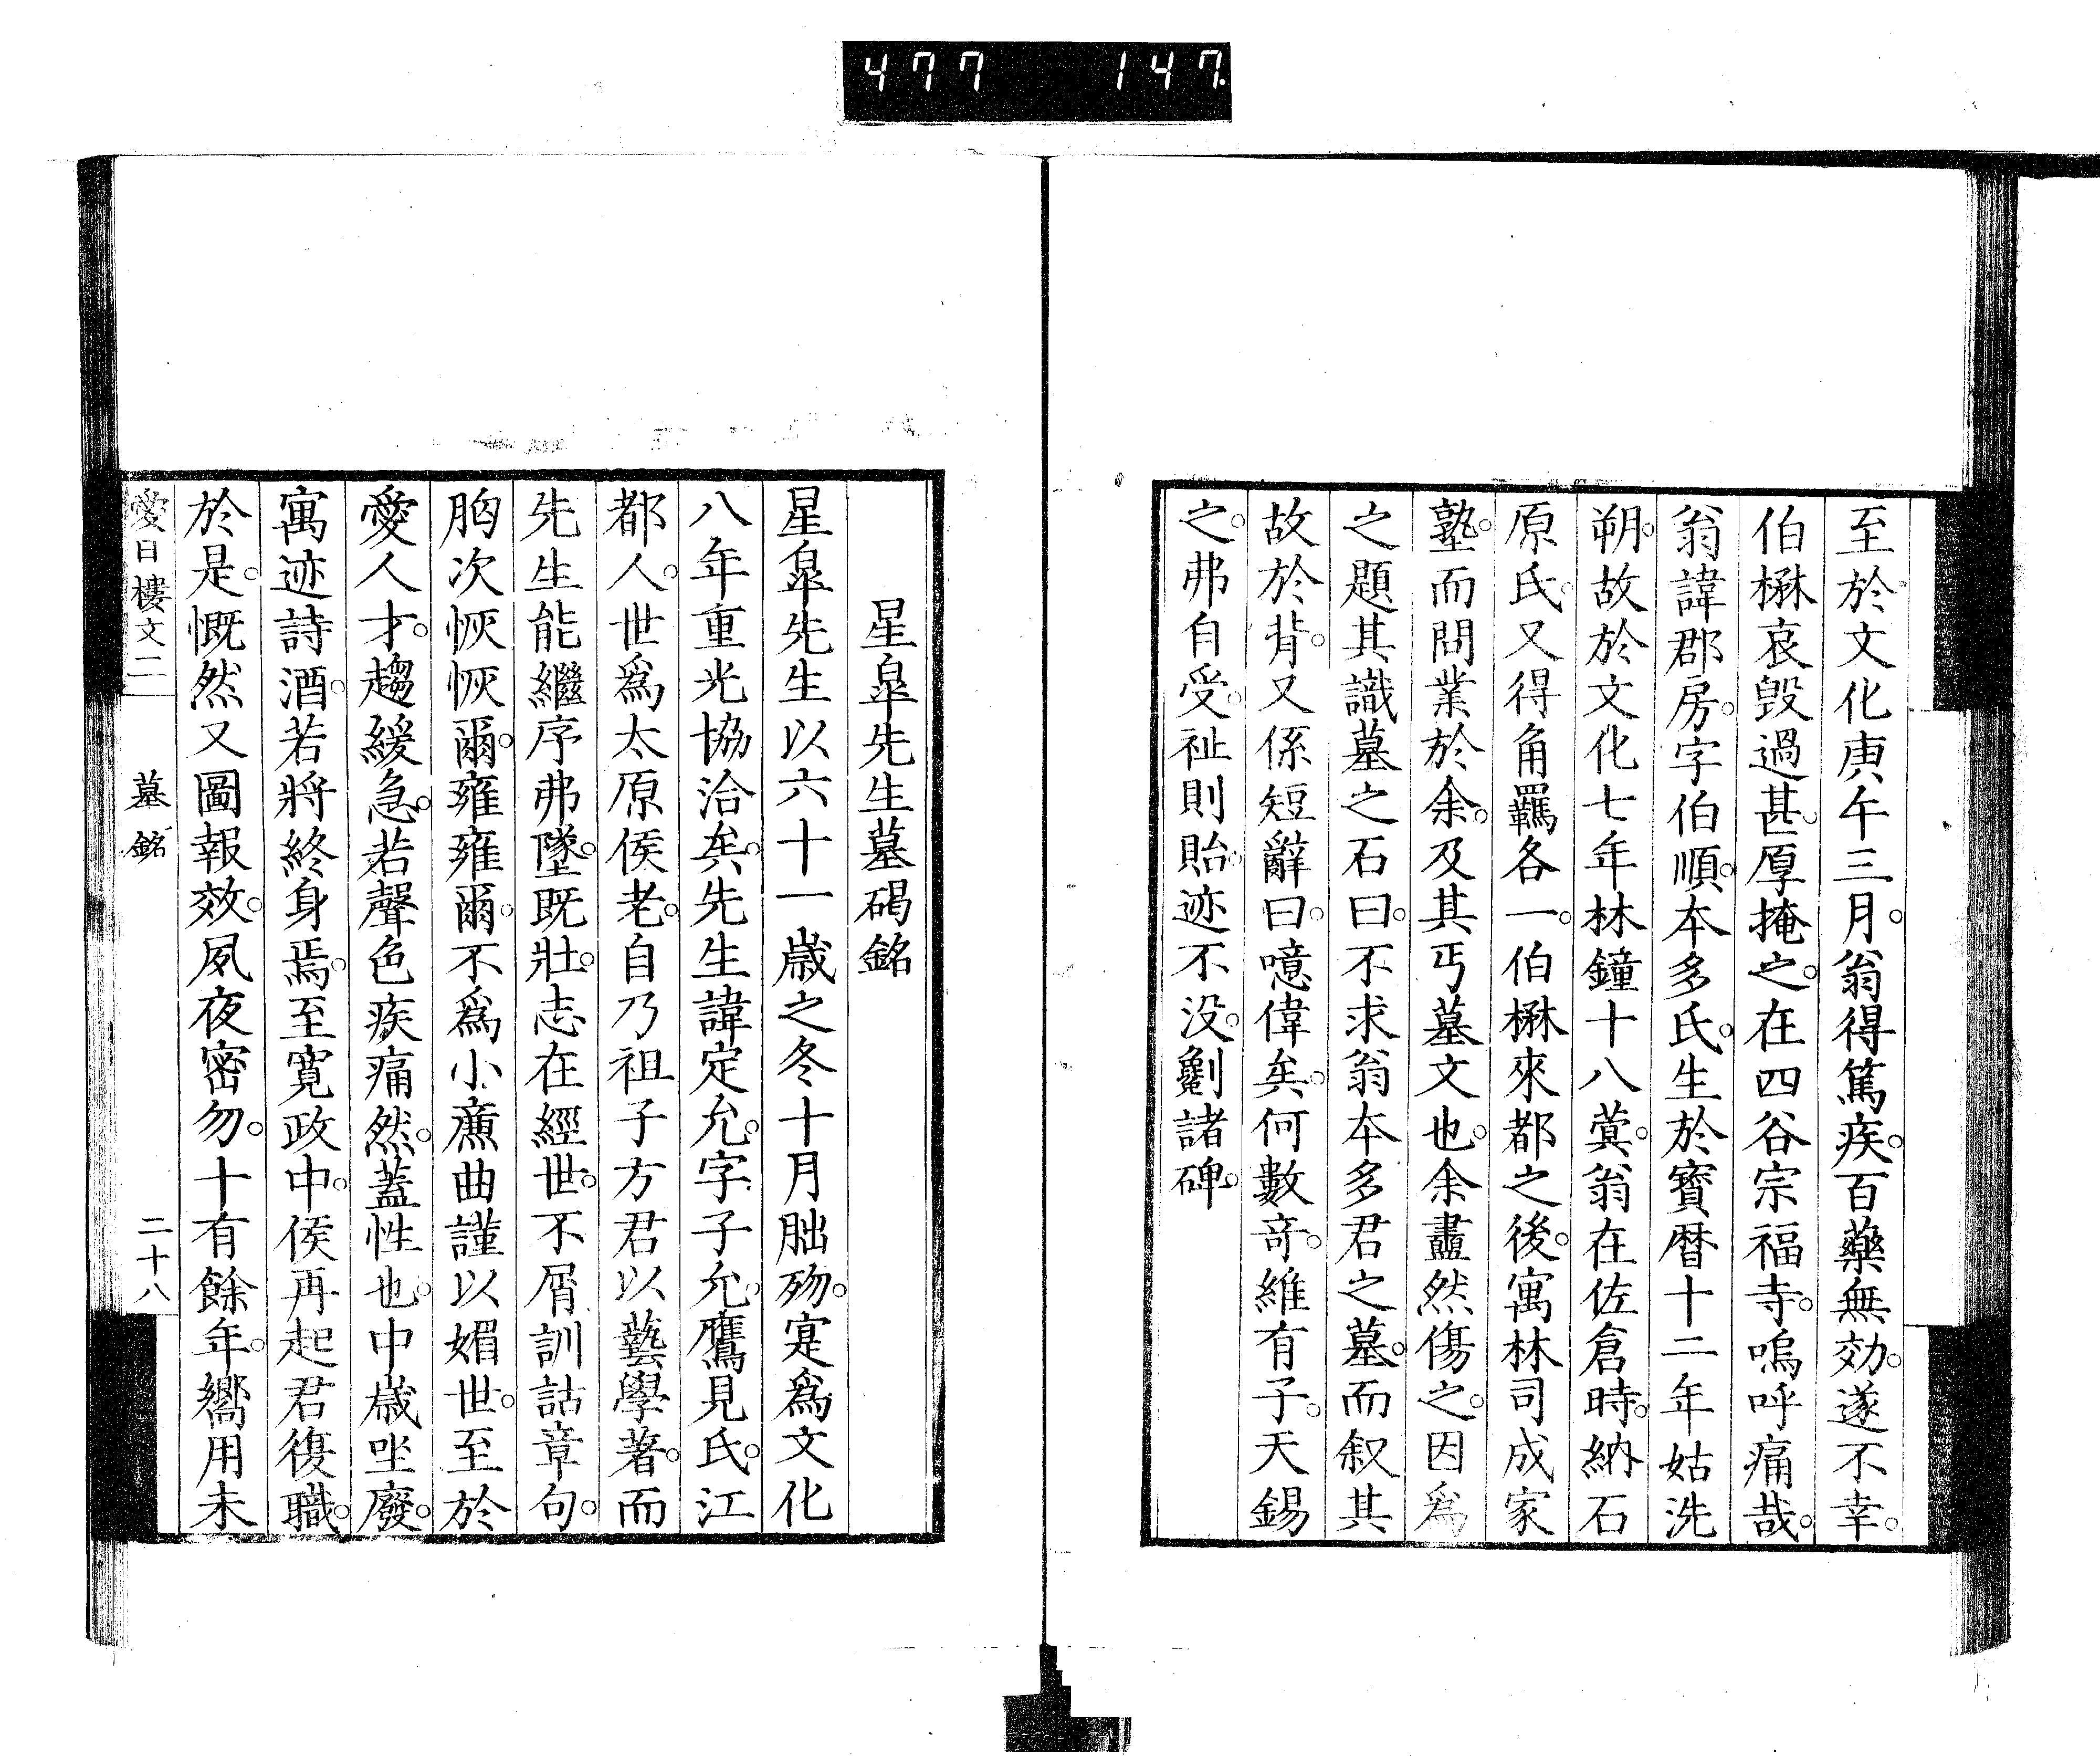 477 147
至於文化庚午三月。翁得篤疾。百藥無効。遂不幸。
伯楙哀毀過甚。厚掩之。在四谷宗福寺。嗚呼痛哉。
翁諱郡房。字伯順。本多氏。生於寶曆十二年姑洗
朔。故於文化七年林鐘十八蓂。翁在佐倉時。納石
原氏。又得角羈各一。伯楙來都之後。寓林司成家
塾。而問業於余。及其丐墓文也。余衋然傷之。因爲
之題其識墓之石曰。不求翁本多君之墓。而叙其
故於背。又係短辭曰。噫偉矣。何數奇。維有子。天錫
之。弗自受。祉則貽。迹不没。劖諸碑。
星皐先生墓碣銘
星皐先生以六十一歲之冬十月朏歾。寔爲文化
八年重光協洽矣。先生諱定允。字子允。鷹見氏。江
都人。世爲太原侯老。自乃祖子方君以藝學著。而
先生能繼序弗墜。既壯。志在經世。不屑訓詁章句。
胸次恢恢爾。雍雍爾。不爲小㢘曲謹以媚世。至於
愛人才。趨緩急。若聲色疾痛然。蓋性也。中歲坐廢。
寓迹詩酒。若將終身焉。至寬政中。侯再起君復職。
於是。慨然又圖報效。夙夜密勿。十有餘年。嚮用未
愛日樓文二 墓銘 二十八